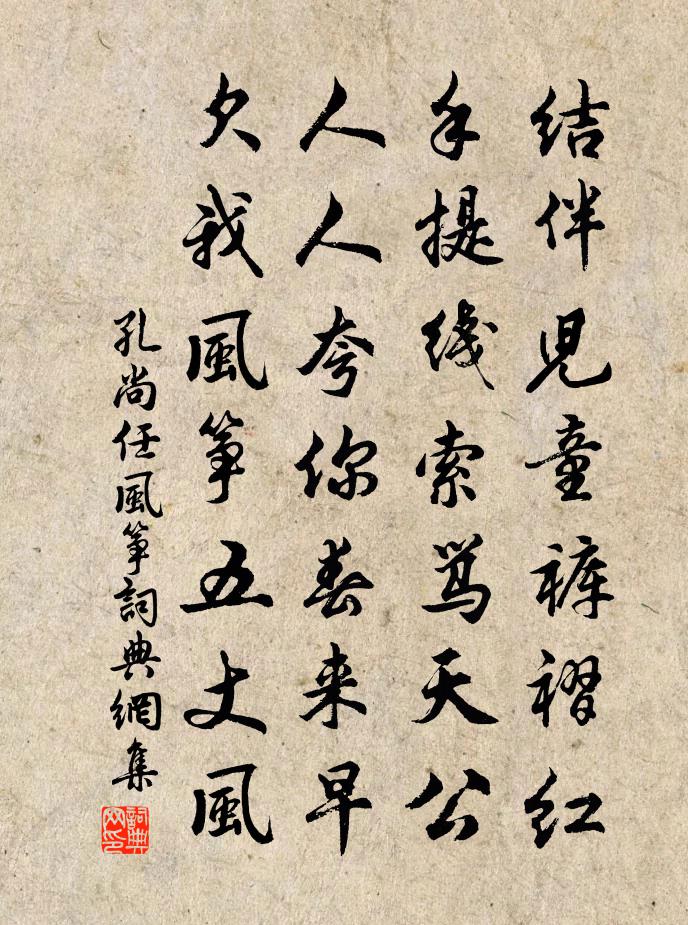 结伴児童裤褶红
手提线索骂天公
人人夸你春来早
欠我風筝五丈風
孔尚任風筝詞典網集
詞典网印